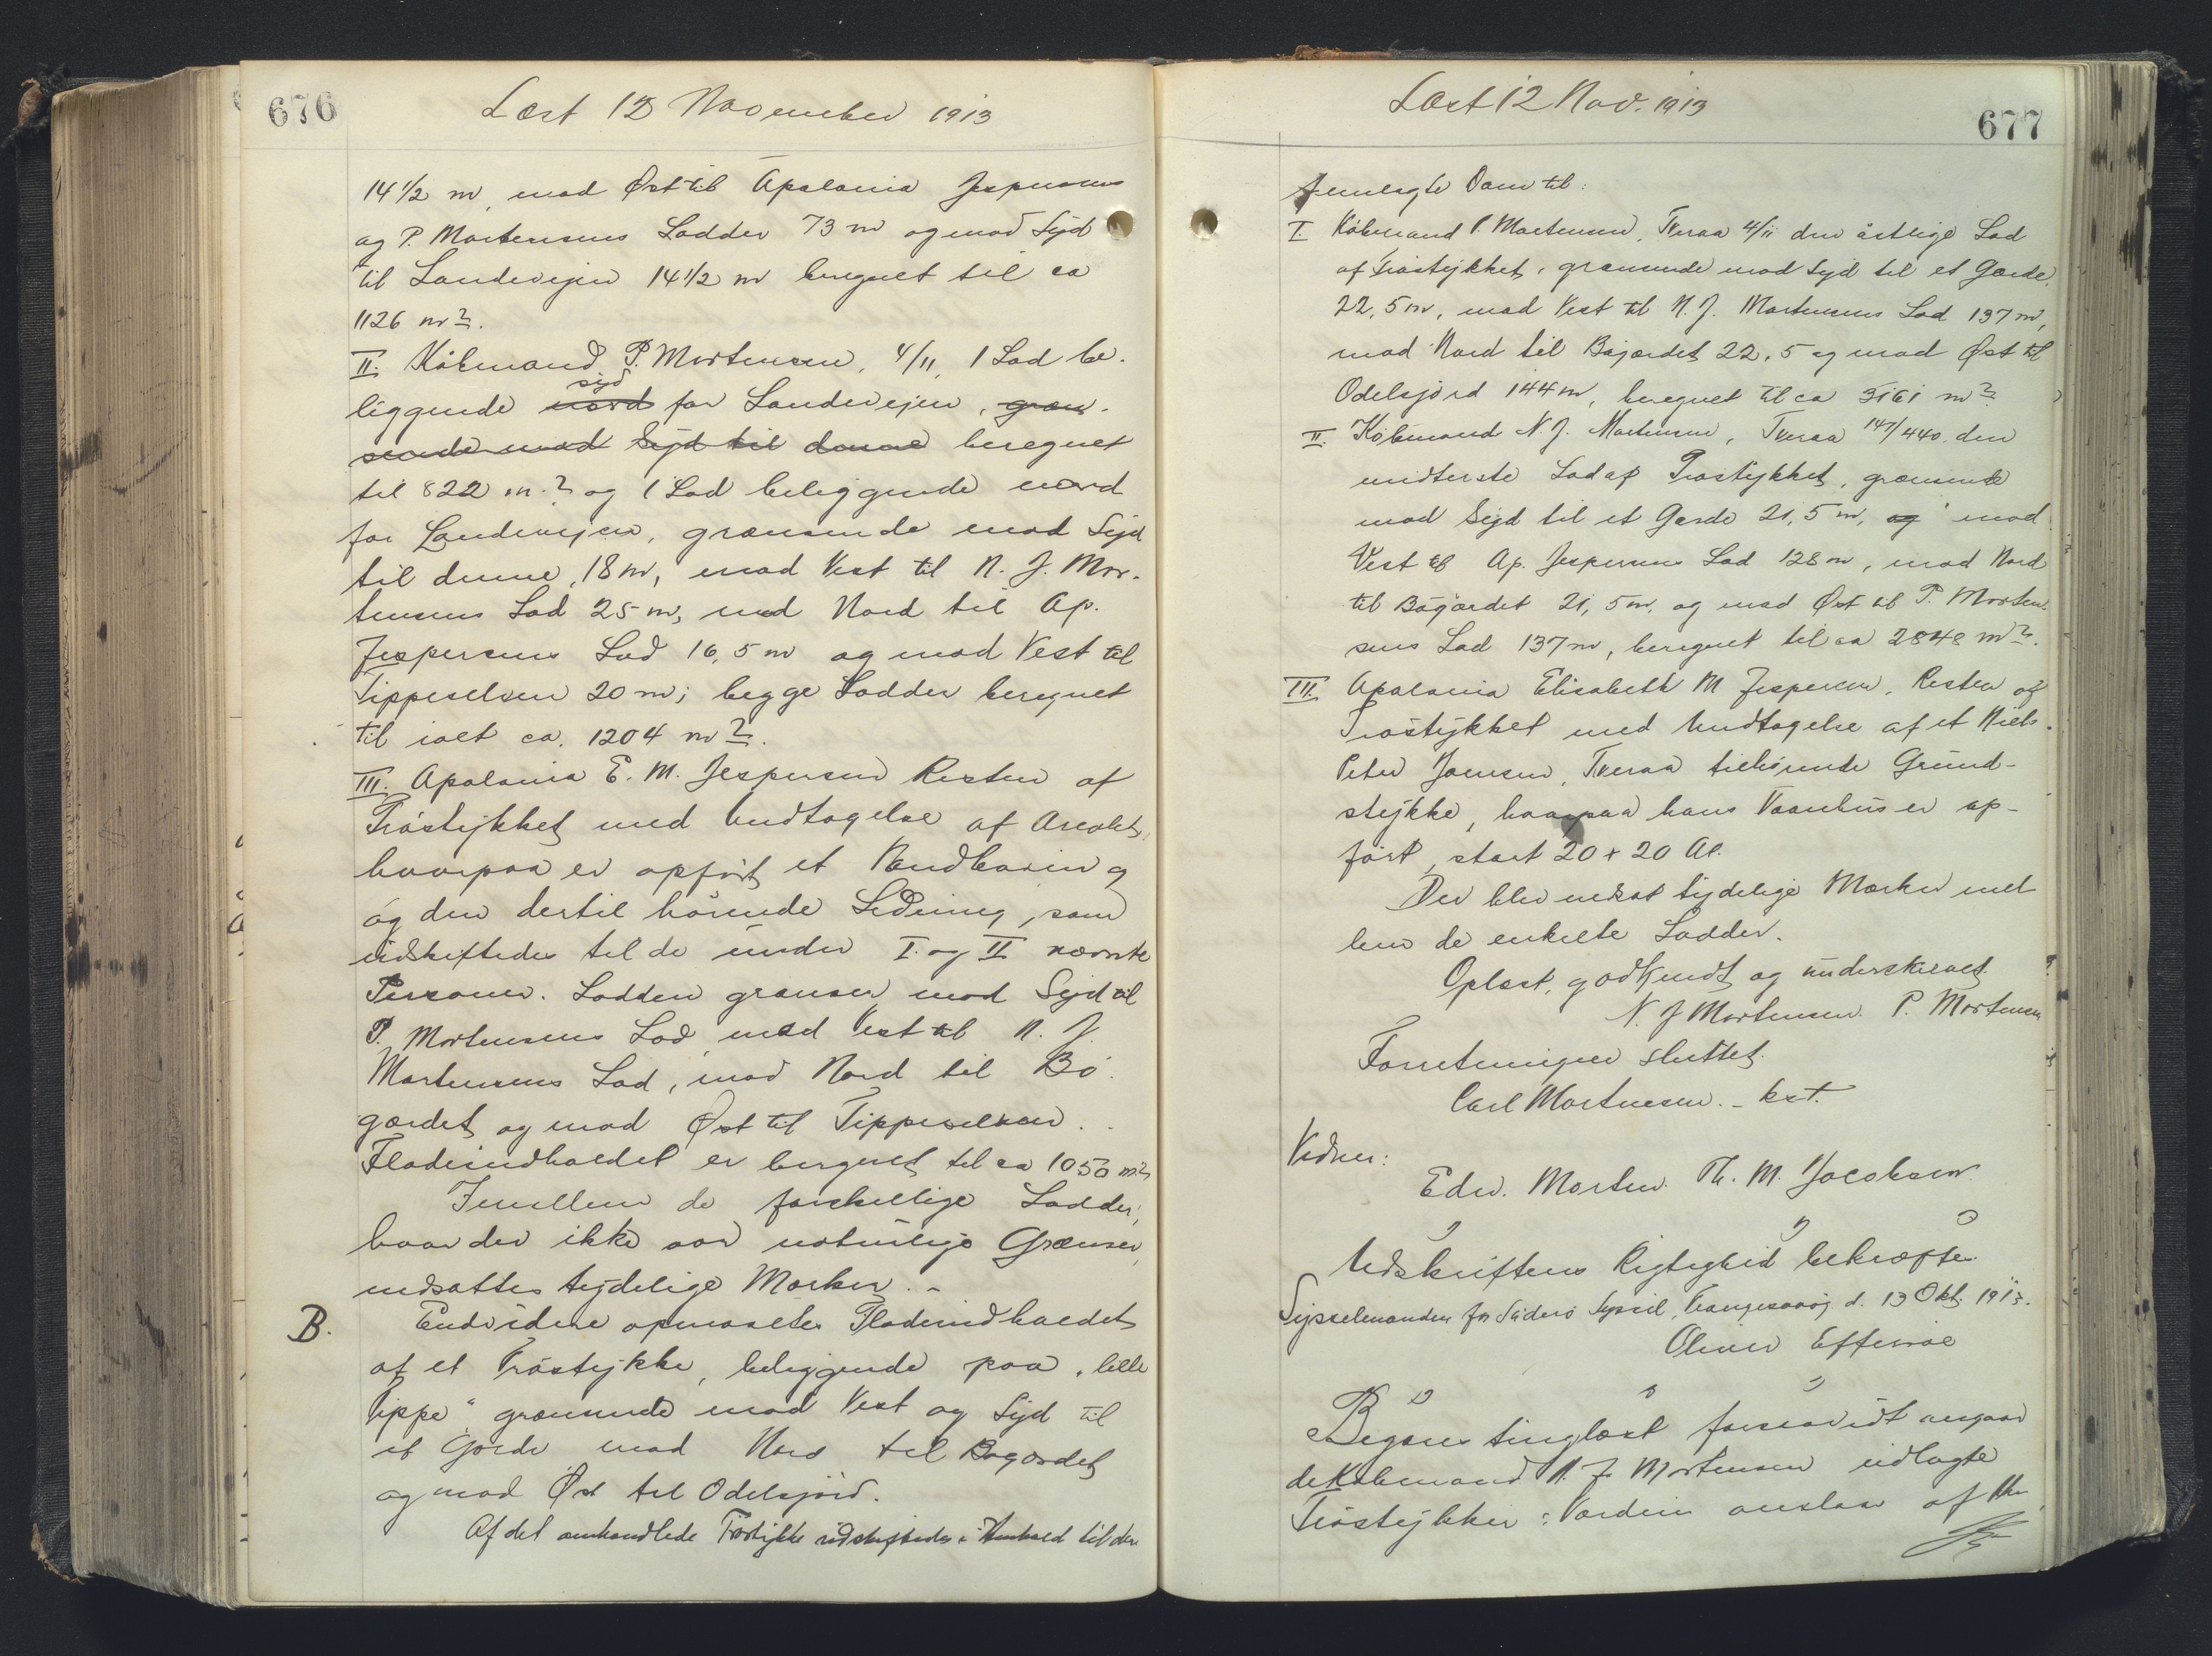 676
Læst 12 November 1913
14 1/2 m, mod Øst til Apolonia Jespersens
og P. Mortensens Lodder 73 m og mod Syd
til Landevejen 14 1/2 m beregnet til ca
1126 m2.
II. Købmand P. Mortensen, 4/11, 1 Lod be-
liggende nord syd for Landevejen, græn-
sende mod Syd til denne beregnet
til 822 m2 og 1 Lod beliggende nord
for Landevejen, grænsende mod Syd
til denne, 18 m, mod Vest til N. J. Mor-
tensens Lod 25 m, mod Nord til Ap.
Jespersens Lod 16,5 m og mod Vest til
Tippeselven 20 m; begge Lodder beregnet
til ialt ca. 1204 m2.
III. Apolonia E. M. Jespersen Resten af
Trøstykket med Undtagelse af Arealet,
hvorpaa er opført et Vandbasin og
og den dertil hørende Ledning, som
udskiftedes til de under I. og II nævnte
Personer. Lodden grænser mod Syd til
P. Mortensens Lod, mod Vest til N. J.
Mortensens Lod, mod Nord til Bø-
gærdet og mod Øst til Tippeselven.
Fladeindholdet er beregnet til ca 1050 m2
Imellem de forskellige Lodder,
hvor der ikke var naturlige Grænser,
nedsattes tydelige Mærker. -
B.
Endvidere opmaaltes Fladeindholdet
af et Trøstykke, beliggende paa „lille
Tippe“ grænsende mod Vest og Syd til
et Gærde mod Nord til Bøgærdet
og mod Øst til Odelsjord.
Af det omhandlede Trøstykke udskiftedes i Henhold til den
Læst 12 Nov. 1913
677
fremlagte Dom til:
I Købmand P. Mortensen, Tveraa 4/11 den østlige Lod
af Trøstykket, grænsende mod Syd til et Gærde,
22,5 m, mod Vest til N. J. Mortensens Lod 137 m,
mod Nord til Bøgærdet 22,5 og mod Øst til
Odelsjord 144 m, beregnet til ca 3161 m2
II. Købmand N. J. Mortensen, Tveraa 147/440 den
midterste Lod af Trøstykket, grænsende
mod Syd til et Gærde 21,5 m, og mod
Vest til Ap. Jespersens Lod 128 m, mod Nord
til Bøgærdet 21,5 m, og mod Øst til P. Morten-
sens Lod 137 m, beregnet til ca 2848 m2.
III. Apolonia Elisabeth M Jespersen, Resten af
Trøstykket med Undtagelse af et Niels
Peter Joensen, Tveraa tilhørende Grund-
stykke, hvorpaa hans Vaanhus er op-
ført, stort 20 + 20 Al.
Der blev nedsat tydelige Mærker mel
lem de enkelte Lodder.
Oplæst, godkendt og underskrevet.
N. J Mortensen. P. Mortensen
Forretningen sluttet.
Carl Mortensen. - kst.
Vidner:
Edw. Morten. Th. M. Jacobsen.
Udskriftens Rigtighed bekræftes
Sysselmanden for Suderø Syssel, Trangisvaag d. 13 Okt. 1913.
Oliver Effersøe
Begæres tinglæst forsaavidt angaar
de Købmand N. J. Mortensen udlagte
Trøstykker: Værdien anslaas af